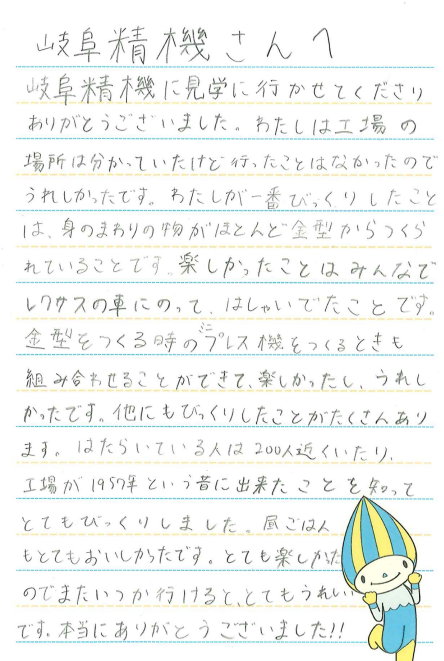 岐阜精機さんへ
岐阜精機に見学に行かせてくださり
ありがとうございました。わたしは工場の
場所は分かっていたけど行ったことはなかったので
うれしかったです。わたしが一番びっくりしたこと
は、身のまわりの物がほとんど金型からつくら
れていることです。楽しかったことはみんなで
レクサスの車にのって、はしゃいでたことです。
金型をつくる時のミニプレス機をつくるときも
組み合わせることができて、楽しかったし、うれし
かったです。他にもびっくりしたことがたくさんあり
ます。はたらいている人は200人近くいたり、
工場が1957年という昔に出来たことを知って
とてもびっくりしました。昼ごはん
もとてもおいしかったです。とても楽しかた
のでまたいつか行けると、とてもうれしい
です。本当にありがとうございました!!